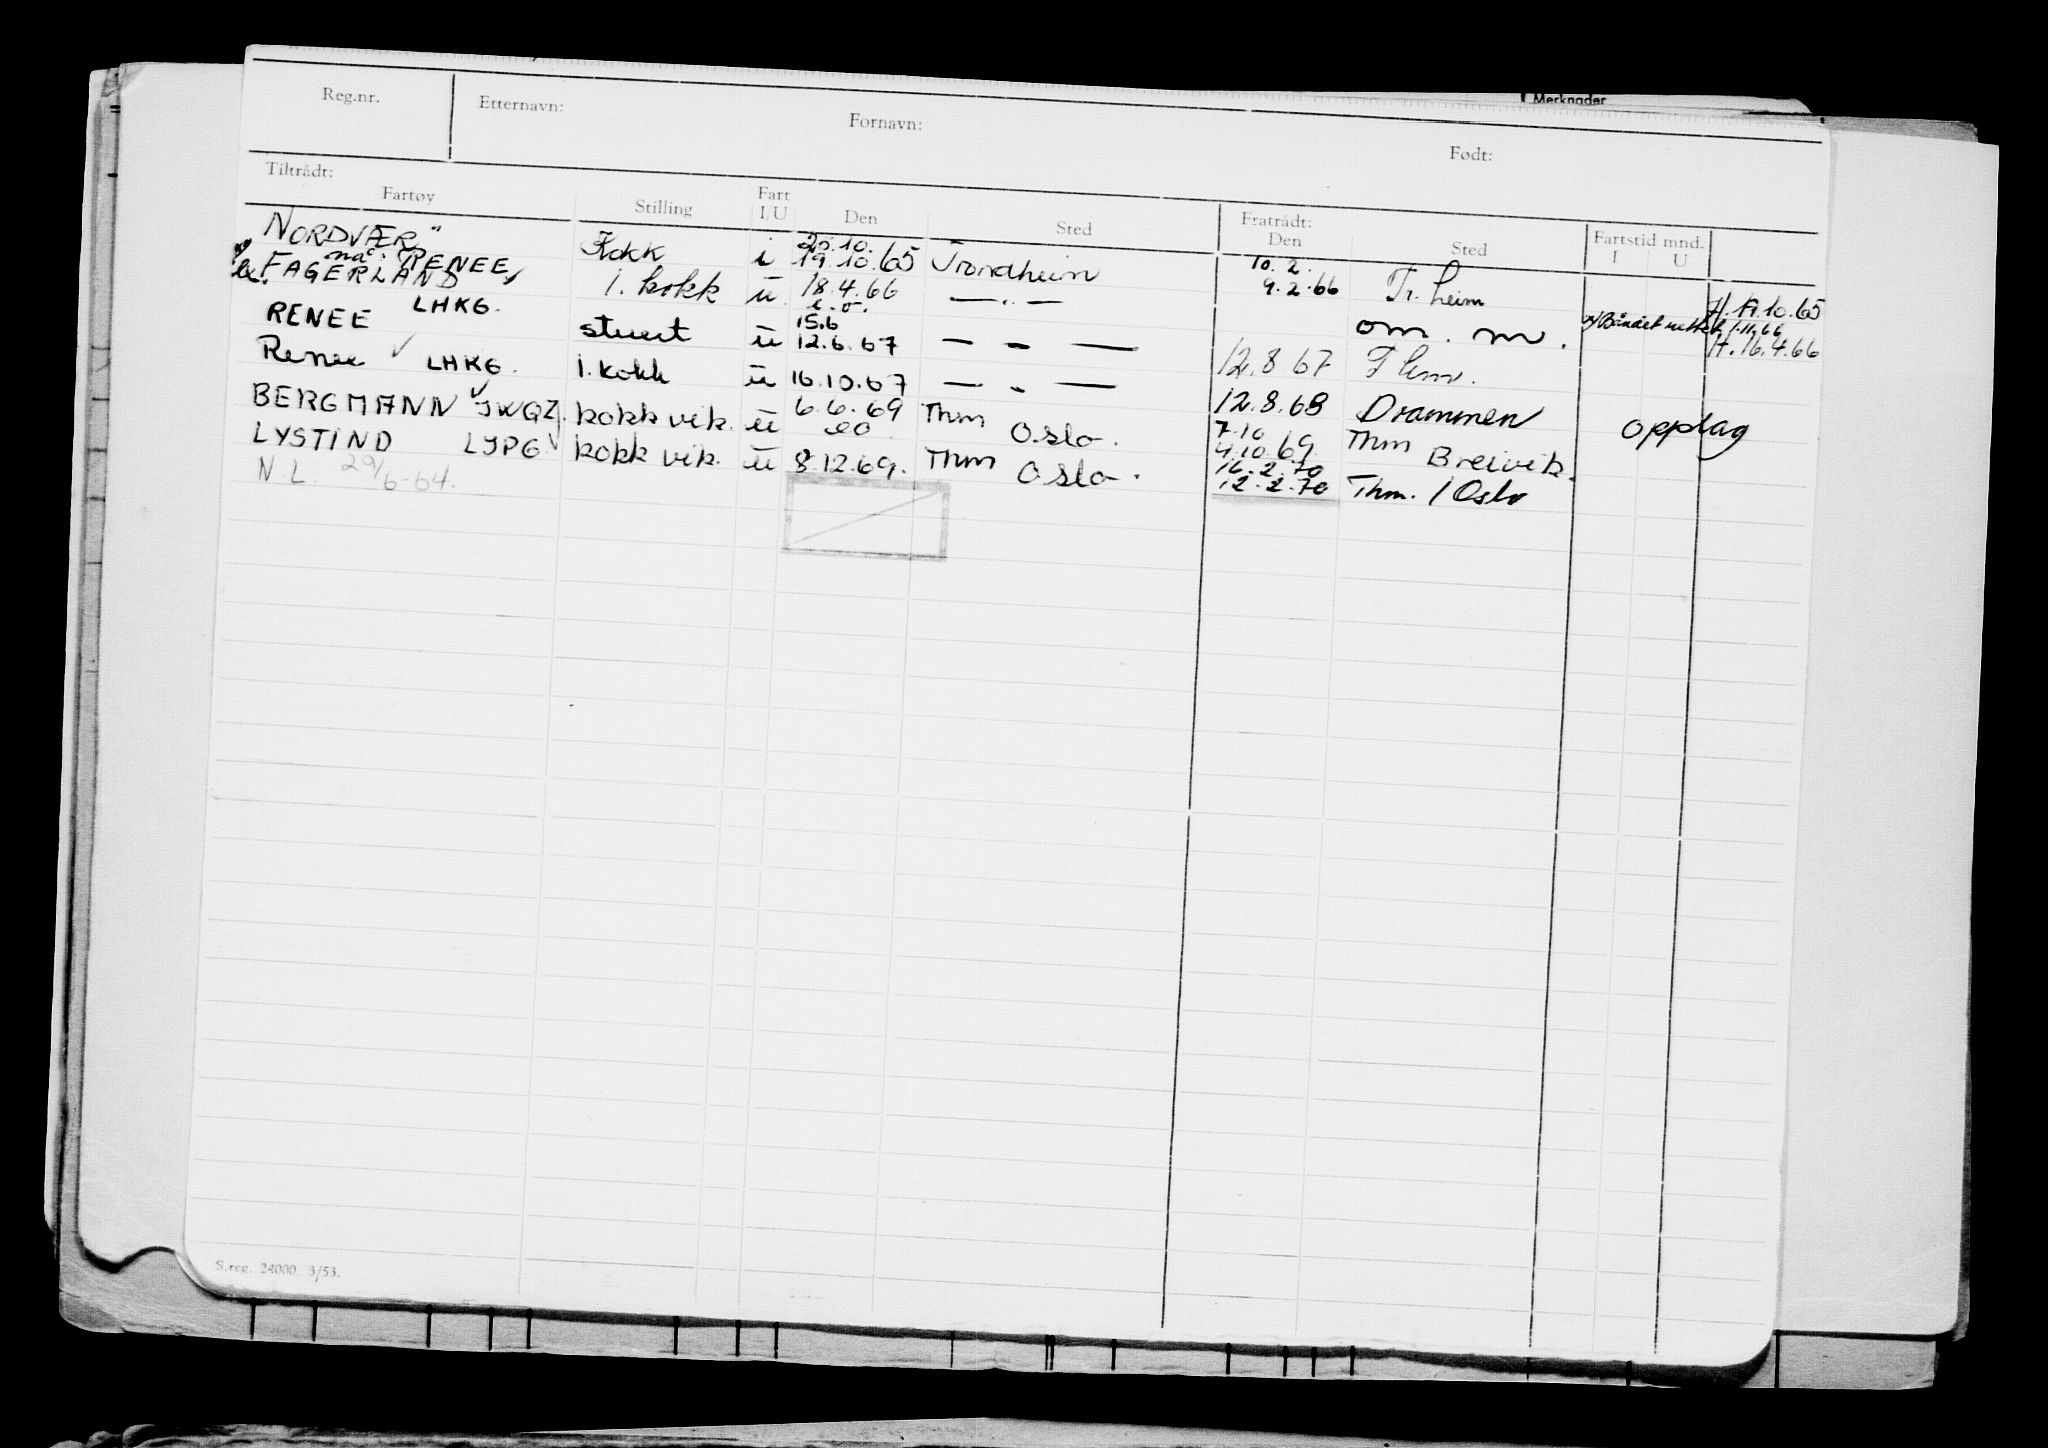 Merknader
Reg.nr. Etternavn: Fornavn: Født:
Tiltrådt: Fratrådt:
Fartøy Stilling Fart I/U Den Sted Den Sted Fartstid mnd. I U
NORDVÆR" Kokk i 20.10. 19.10.65 Trondheim 10.2. 9.2.66 Tr.heim H. 19.10.65
nå: RENEE
FAGERLAND 1. kokk u 18.4.66 — " — om. m. x/Båndet 1.11.66
LHKG. e.o. H. 16.4.66
RENEE stuert u 15.6 12.6.67 — " — 12.8 67 T heim.
Renee ✓ LHKG. 1. kokk u 16.10.67 — " — 12.8.68 Drammen opplag
BERGMANN ✓ JWQZ. kokk vik. u 6.6.69 eo Thm Oslo. 7.10 4.10.69. Thm Breivik.
LYSTIND LJPG ✓ kokk vik. u 8.12.69. Thm Oslo. 16.2.70 12.2.70 Thm. / Oslo
N.L. 29/6-64.
S.reg. 24000. 3/53.